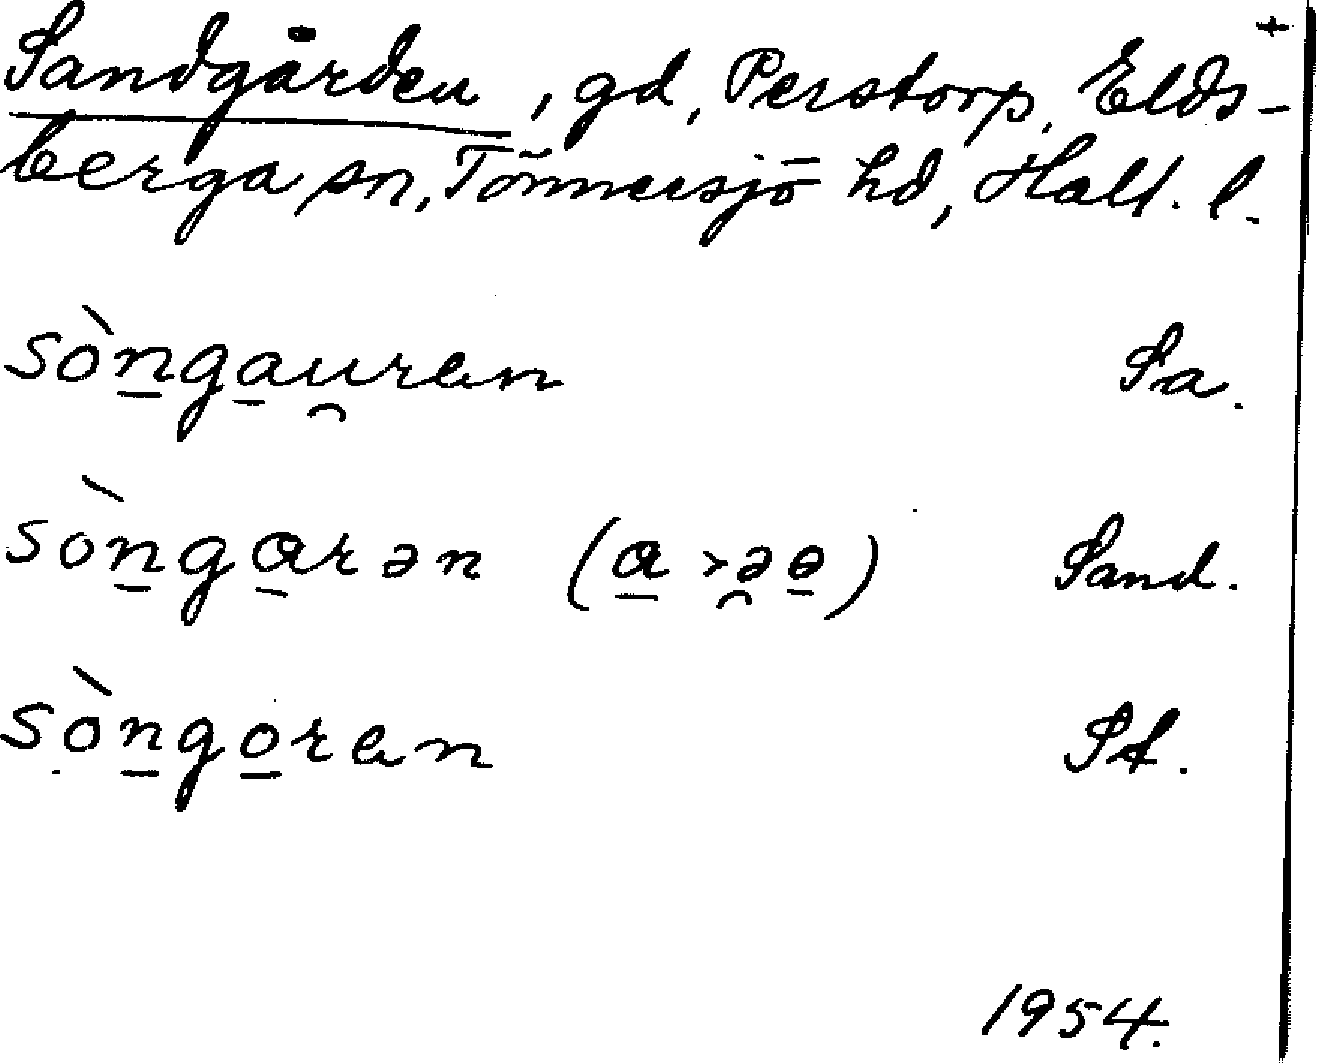 +
Sandgården, gd, Perstorp, Elds-
berga sn, Tönnersjö hd, Hall. l.
sòn̲ga̲u̯ren Sa.
sòn̲ga̲rən (a̲ > ə̯ɵ̲) Sand.
sòn̲go̲ren St.
1954.